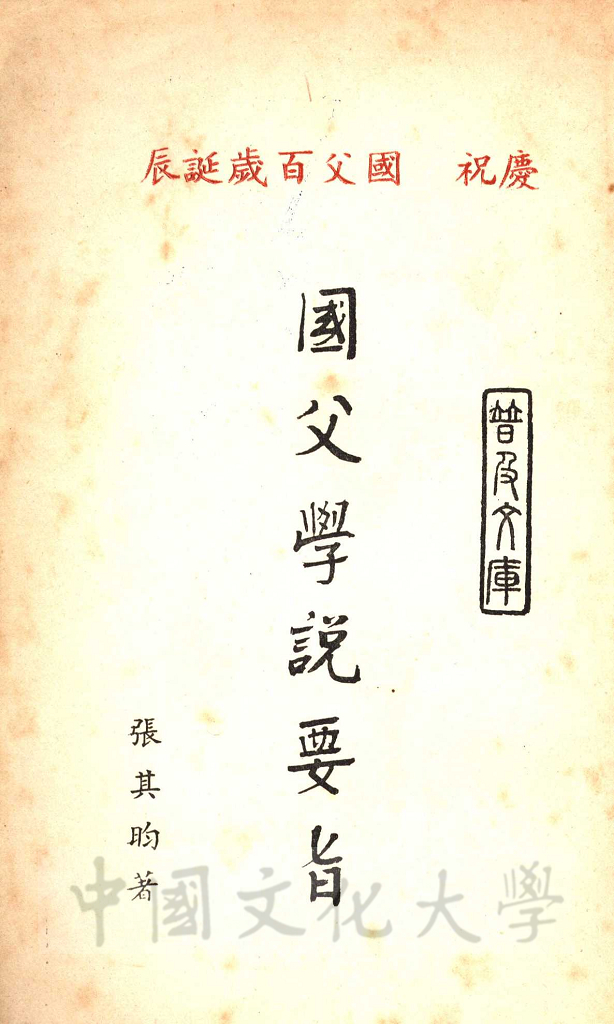 慶祝 國父百歲誕辰
普及文庫
國父學說要旨
張其昀著
中國文化大學